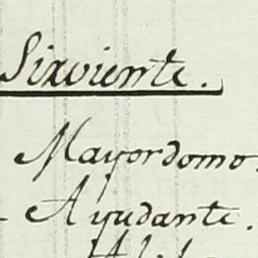 Sirviente.
Mayordomo.
Ayudante.